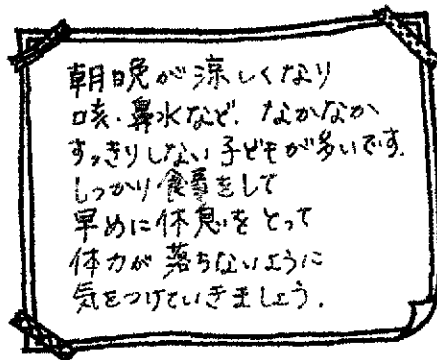 朝晩が涼しくなり
咳・鼻水など、なかなか
すっきりしない子どもが多いです。
しっかり食事をして
早めに休息をとって
体力が落ちないように
気をつけていきましょう。